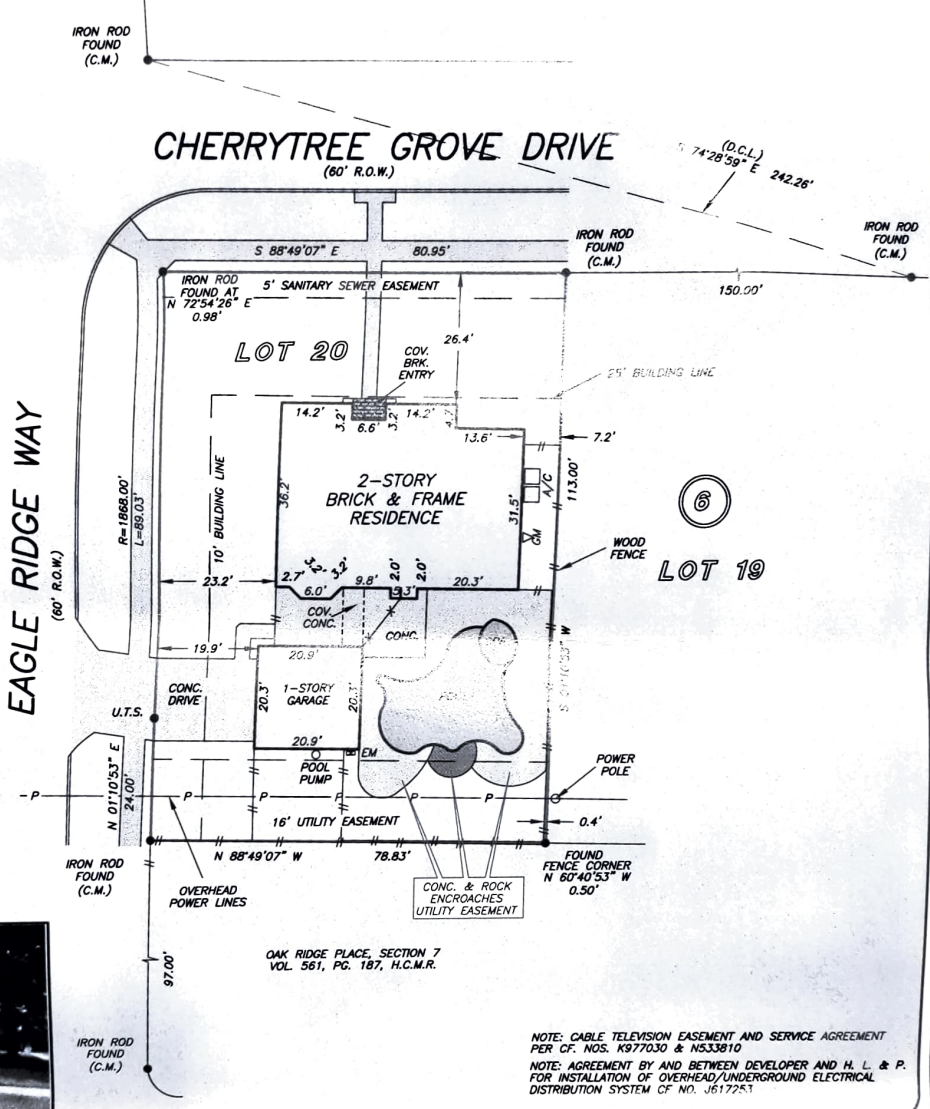 IRON ROD
FOUND
(C.M.)
CHERRYTREE GROVE DRIVE
(60' R.O.W.)
(D.C.L.)
74°28'59" E 242.26'
IRON ROD
FOUND
(C.M.)
IRON ROD
FOUND
(C.M.)
S 88°49'07" E 80.95'
IRON ROD
FOUND AT
N 72°54'26" E
0.98'
5' SANITARY SEWER EASEMENT
150.00'
26.4'
LOT 20
COV.
BRK.
ENTRY
25' BUILDING LINE
14.2'
3.2'
6.6'
3.2'
14.2'
4.7'
13.6'
7.2'
EAGLE RIDGE WAY
(60' R.O.W.)
R=1868.00'
L=89.03'
10' BUILDING LINE
36.2'
2-STORY
BRICK & FRAME
RESIDENCE
31.5'
A/C
113.00'
GM
6
WOOD
FENCE
LOT 19
23.2'
2.7'
3.2'
6.0'
3.2'
9.8'
2.0'
5.3'
2.0'
20.3'
COV.
CONC.
CONC.
19.9'
20.9'
CONC.
DRIVE
20.3'
1-STORY
GARAGE
20.3'
U.T.S.
20.9'
EM
POOL
PUMP
POWER
POLE
N 01°10'53" E
24.00'
P P P P P P
16' UTILITY EASEMENT
0.4'
N 88°49'07" W 78.83'
IRON ROD
FOUND
(C.M.)
OVERHEAD
POWER LINES
CONC. & ROCK
ENCROACHES
UTILITY EASEMENT
FOUND
FENCE CORNER
N 60°40'53" W
0.50'
97.00'
OAK RIDGE PLACE, SECTION 7
VOL. 561, PG. 187, H.C.M.R.
IRON ROD
FOUND
(C.M.)
NOTE: CABLE TELEVISION EASEMENT AND SERVICE AGREEMENT
PER CF. NOS. K977030 & N533810
NOTE: AGREEMENT BY AND BETWEEN DEVELOPER AND H. L. & P.
FOR INSTALLATION OF OVERHEAD/UNDERGROUND ELECTRICAL
DISTRIBUTION SYSTEM CF NO. J617253